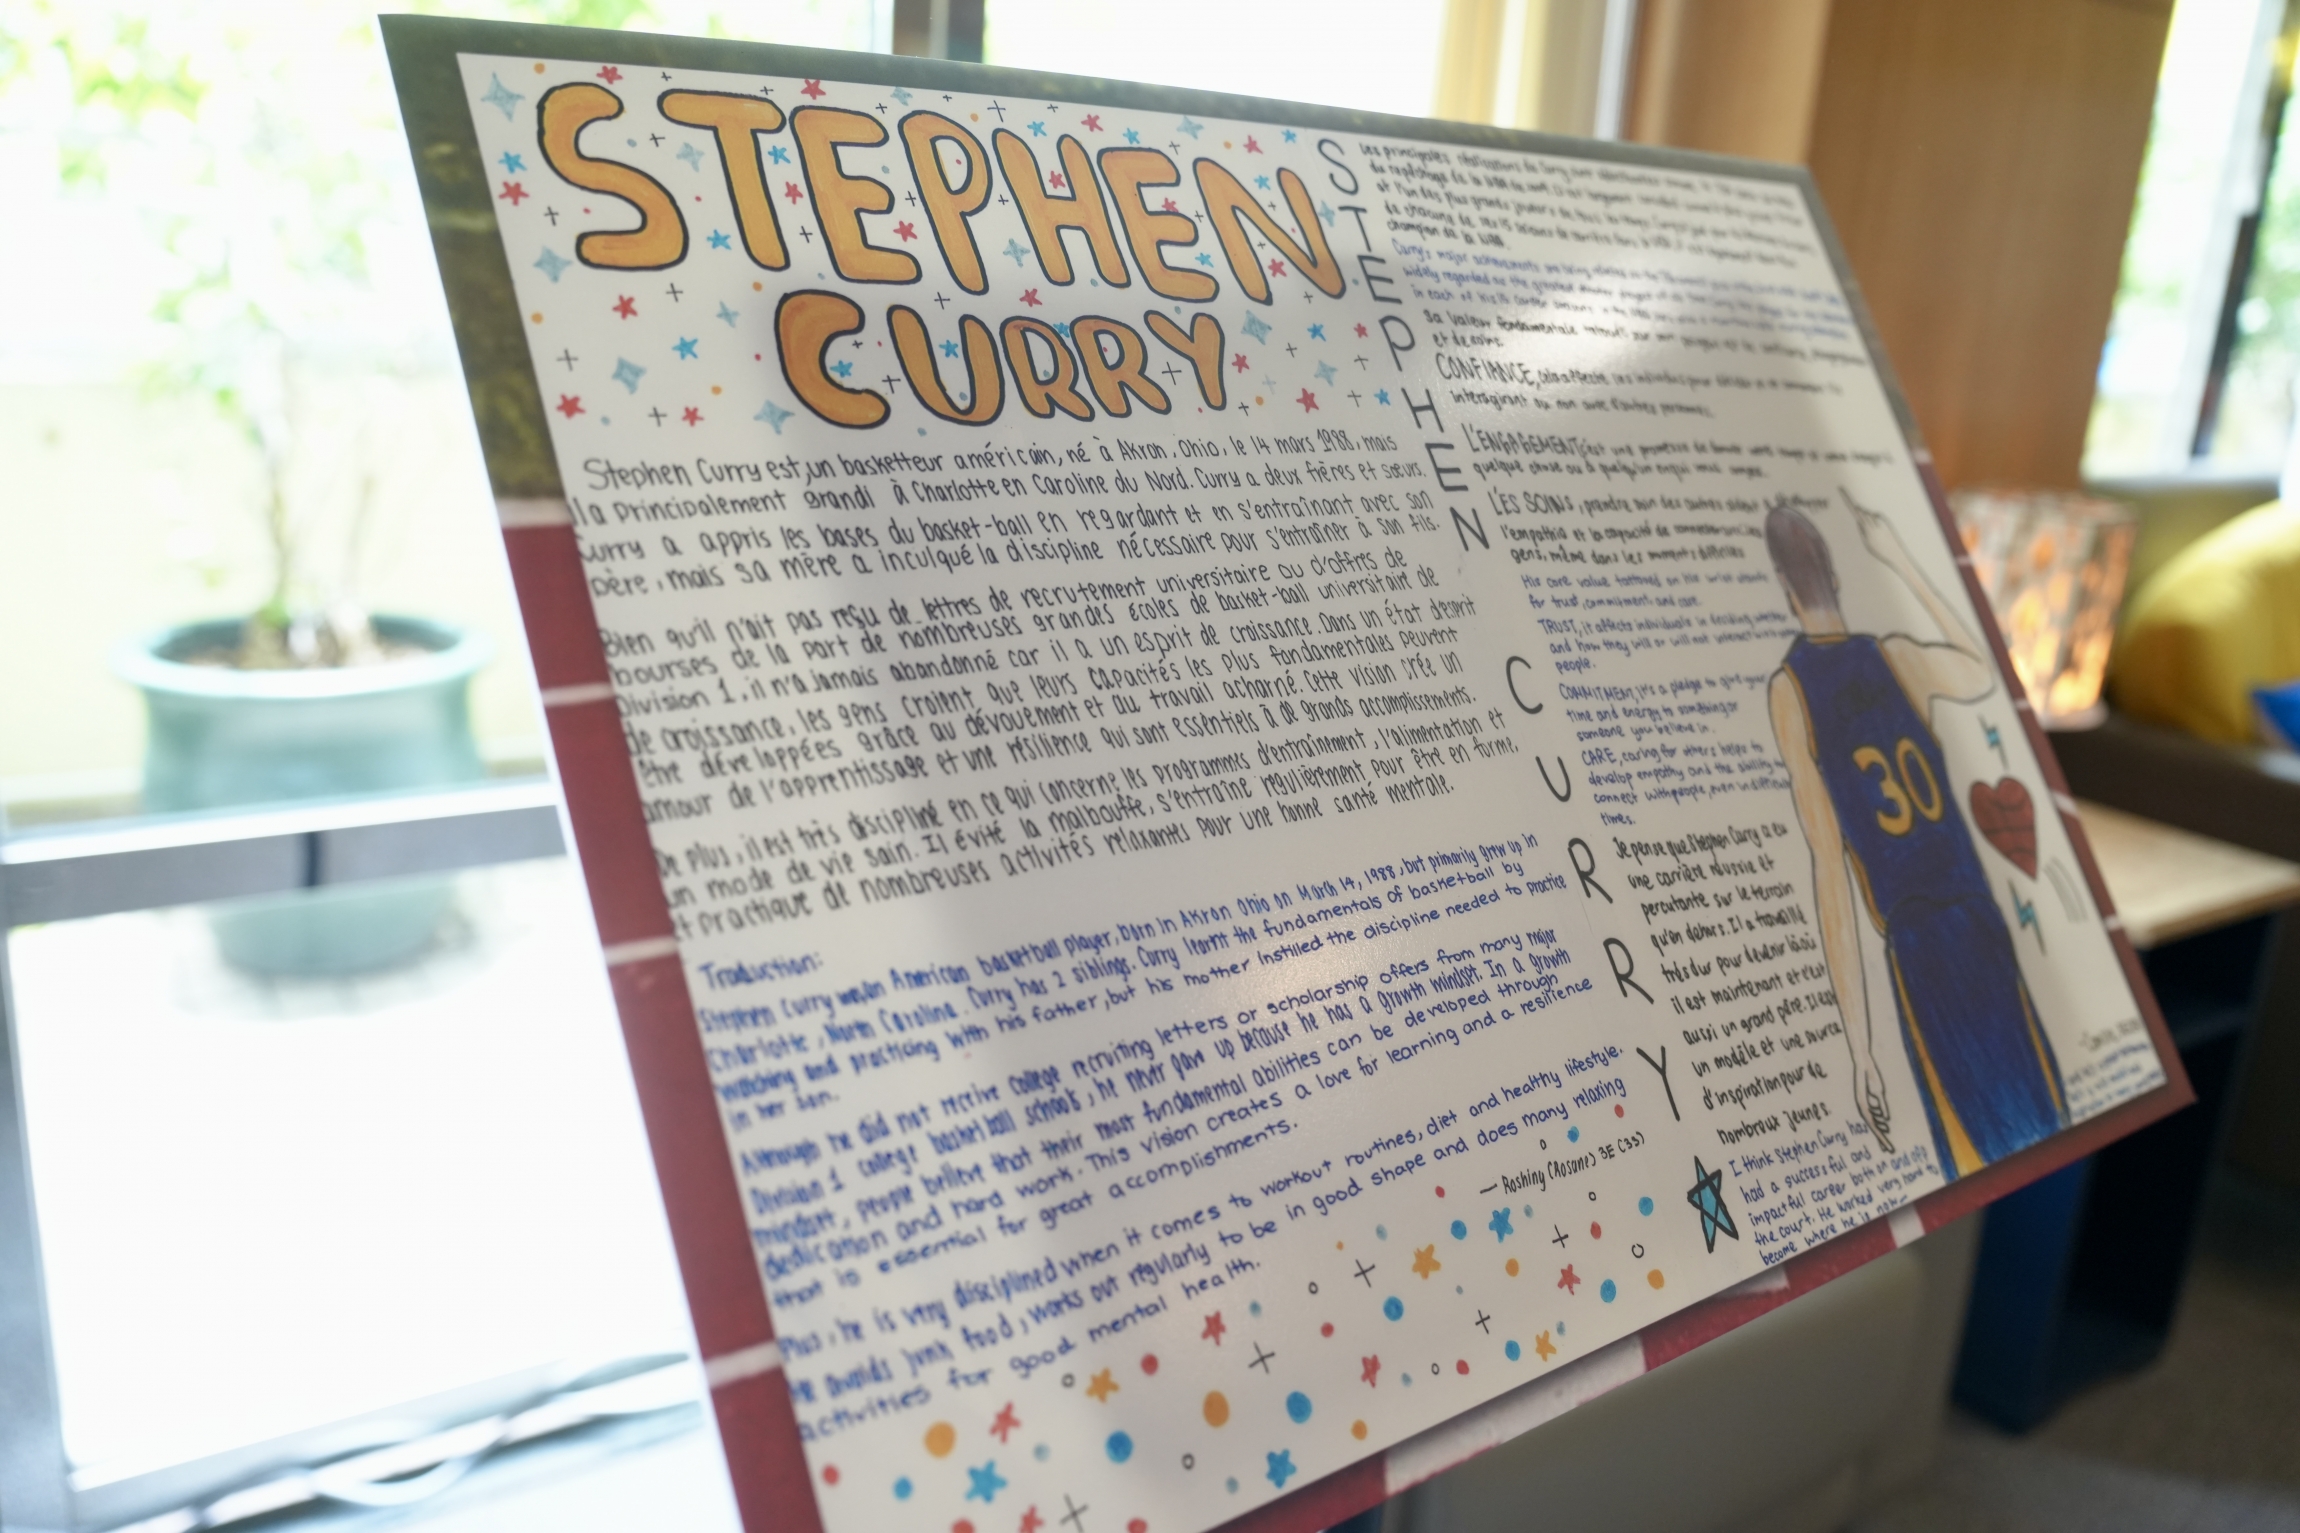 STEPHEN
CURRY
Stephen Curry est, un basketteur américain, né à Akron, Ohio, le 14 mars 1988, mais
Il a principalement grandi à Charlotte en Caroline du Nord. Curry a deux frères et sœurs.
Curry a appris les bases du basket-ball en regardant et en s'entraînant avec son
père, mais sa mère a inculqué la discipline nécessaire pour s'entraîner à son fils.
Bien qu'il n'ait pas reçu de lettres de recrutement universitaire ou d'offres de
bourses de la part de nombreuses grandes écoles de basket-ball universitaire de
Division 1, il n'a jamais abandonné car il a un esprit de croissance. Dans un état d'esprit
de croissance, les gens croient que leurs capacités les plus fondamentales peuvent
être développées grâce au dévouement et au travail acharné. Cette vision crée un
amour de l'apprentissage et une résilience qui sont essentiels à de grands accomplissements.
De plus, il est très discipliné en ce qui concerne les programmes d'entraînement, l'alimentation et
un mode de vie sain. Il évite la malbouffe, s'entraîne régulièrement pour être en forme,
et practique de nombreuses activités relaxantes pour une bonne santé mentale.
Traduction:
Stephen Curry American basketball player, born in Akron Ohio on March 14, 1988, but primarily grew up in
Charlotte, North Carolina. Curry has 2 siblings. Curry learnt the fundamentals of basketball by
watching and practicing with his father, but his mother instilled the discipline needed to practice
in her son.
Although he did not receive college recruiting letters or scholarship offers from many major
Division 1 college basketball schools, he never gave up because he has a growth mindset. In a growth
mindset, people believe that their most fundamental abilities can be developed through
dedication and hard work. This vision creates a love for learning and a resilience
that is essential for great accomplishments.
Plus, he is very disciplined when it comes to workout routines, diet and healthy lifestyle.
He avoids junk food, works out regularly to be in good shape and does many relaxing
activities for good mental health.
— Roshiny (Rosane) 3E (33)
STEPHEN
CURRY
Les principales
champion de la NBA.
Curry's major achievements are being
widely regarded as the greatest
in each of his
Sa valeur fondamentale
et de soins.
CONFIANCE, cela affecte les individus pour décider
interagiront ou non avec d'autres personnes.
L'ENGAGEMENT, c'est une promesse de
quelque chose ou à quelqu'un en qui vous
LES SOINS, prendre soin des autres aident à développer
l'empathie et la capacité de connecter
gens, même dans les moments difficiles
His core value tattooed on his wrist
for trust, commitment and care.
TRUST, it affects individuals in deciding whether
and how they will or will not interact with
people.
COMMITMENT, it's a pledge to give your
time and energy to something or
someone you believe in.
CARE, caring for others helps to
develop empathy and the ability to
connect with people, even in difficult
times.
Je pense que Stephen Curry a eu
une carrière réussie et
percutante sur le terrain
qu'en dehors. Il a travaillé
très dur pour devenir là où
il est maintenant et c'est
aussi un grand père. Il est
un modèle et une source
d'inspiration pour de
nombreux jeunes.
I think Stephen Curry has
had a successful and
impactful career both on and off
the court. He worked very hard to
become where he is now
30